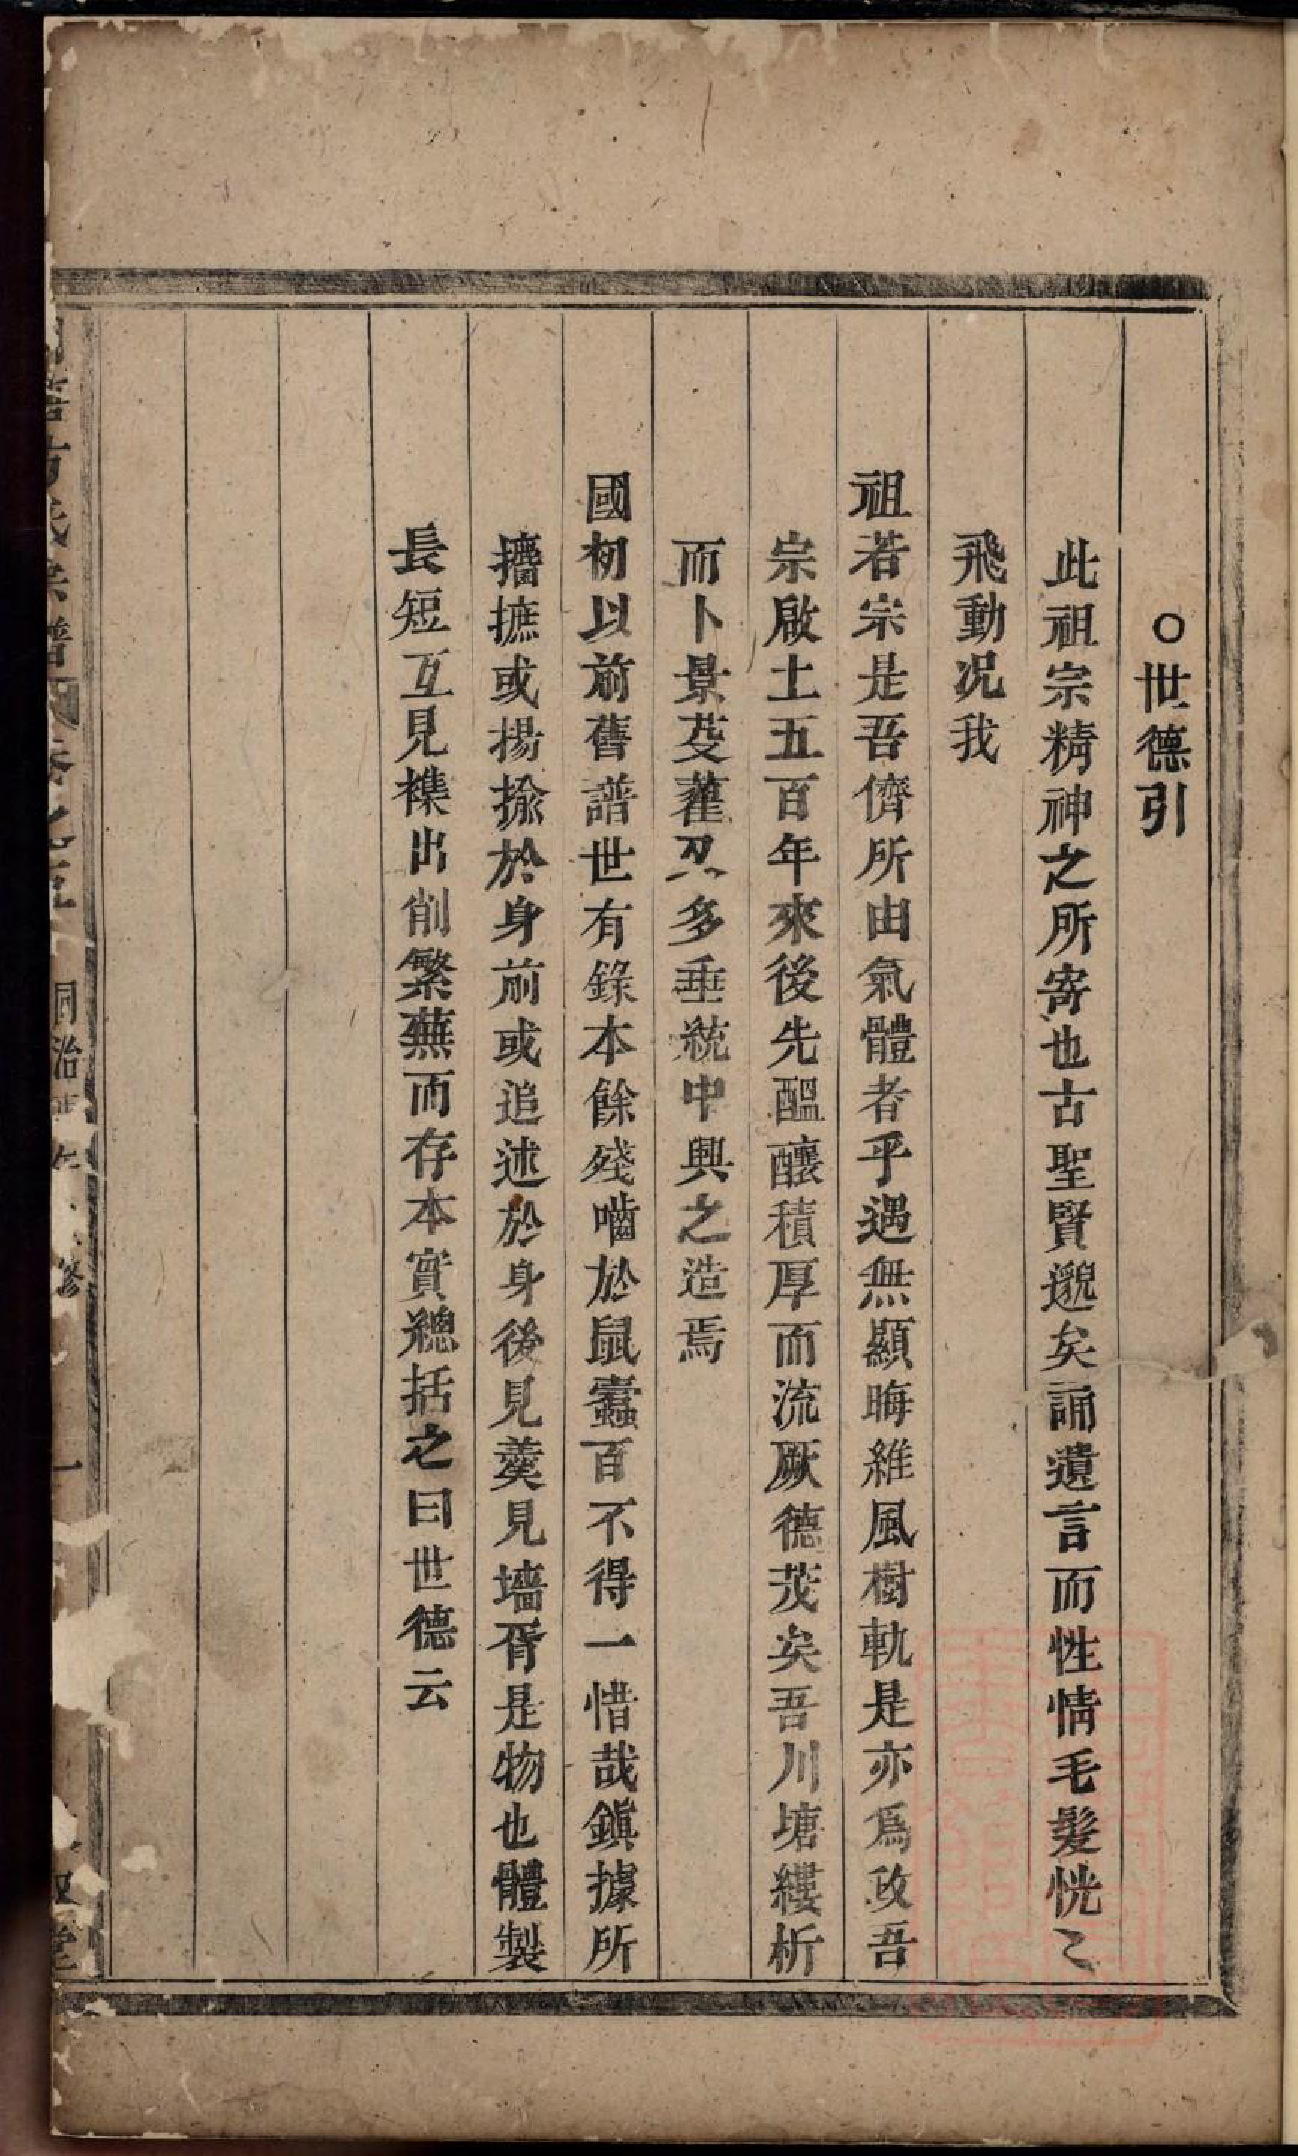 ○世德引
此祖宗精神之所寄也古聖賢邈矣誦遺言而性情毛髮恍〻
飛動况我
祖若宗是吾儕所由氣體者乎遇無顯晦維風樹軌是亦爲政吾
宗啟土五百年來後先醞釀積厚而流厥德茂矣吾川塘縷析
而卜景芟藿忍多垂統中興之造焉
國初以前舊譜世有錄本餘殘嚙於鼠蠹百不得一惜哉鎮據所
擂摭或揚揄於身前或追述於身後見羹見墻胥是物也體製
長短互見襍出削繁蕪而存本實總括之曰世德云
方氏宗譜 卷之 同治 修 一 堂